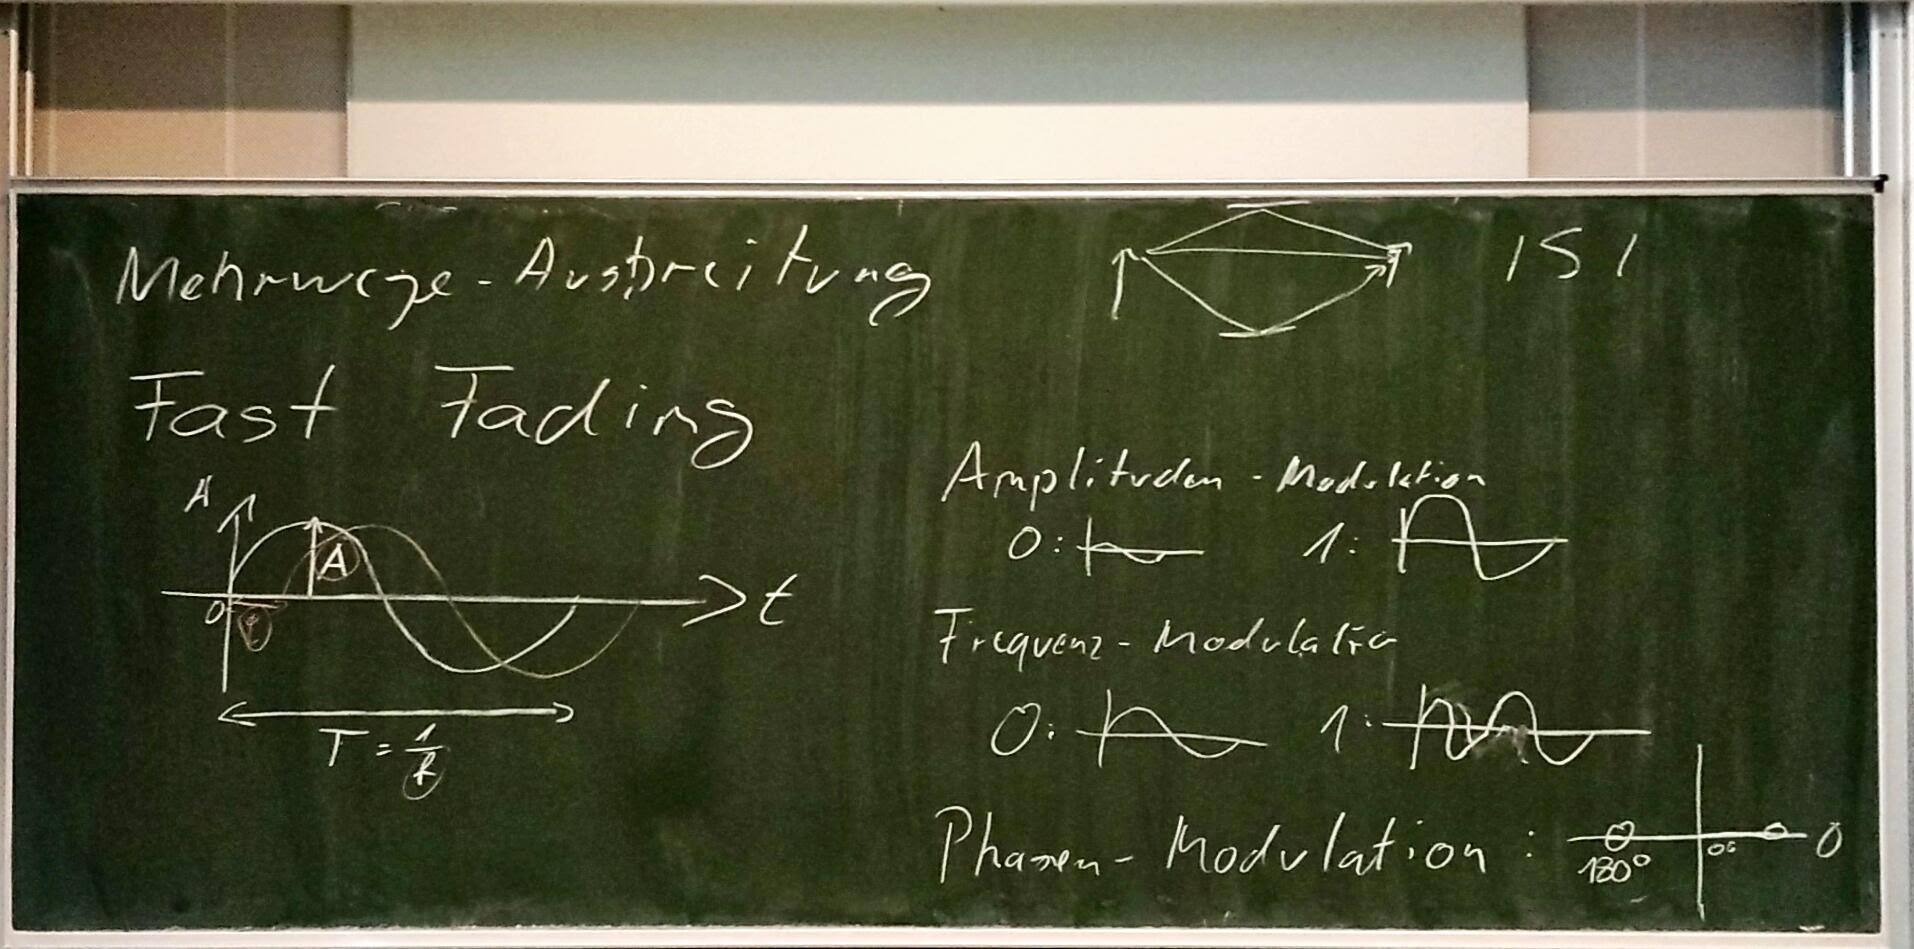 Mehrwege-Ausbreitung
ISI
Fast Fading
A
A
0
φ
t
T = 1/f
Amplituden-Modulation
0:
1:
Frequenz-Modulation
0:
1:
Phasen-Modulation:
180°
0°
0